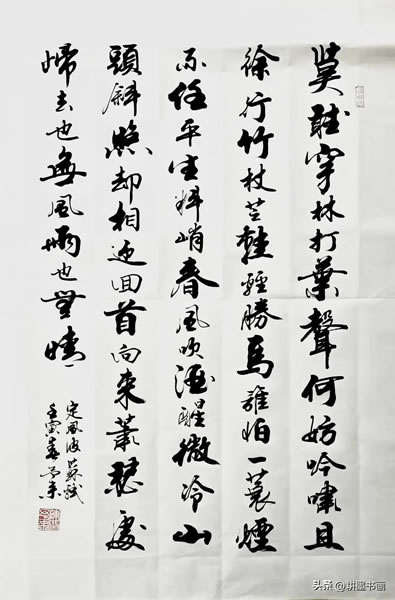 莫聽穿林打葉聲何妨吟嘯且
徐行竹杖芒鞋輕勝馬誰怕一蓑煙
雨任平生料峭春風吹酒醒微冷山
頭斜照却相迎回首向来蕭瑟處
歸去也無風雨也無晴
定風波蘇軾
壬寅春
头条 @耕墨书画